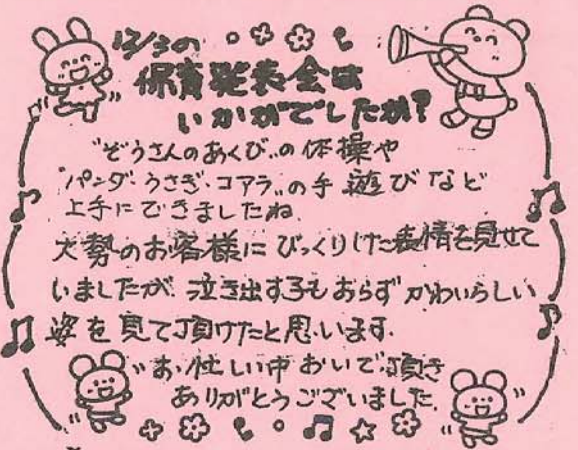 12/3の
保育発表会は
いかがでしたか?
"ぞうさんのあくび"の体操や
"パンダ・うさぎ・コアラ"の手遊びなど
上手にできましたね。
大勢のお客様にびっくりした表情を見せて
いましたが、泣き出す子もおらずかわいらしい
姿を見て頂けたと思います。
お忙しい中おいで頂き
ありがとうございました。